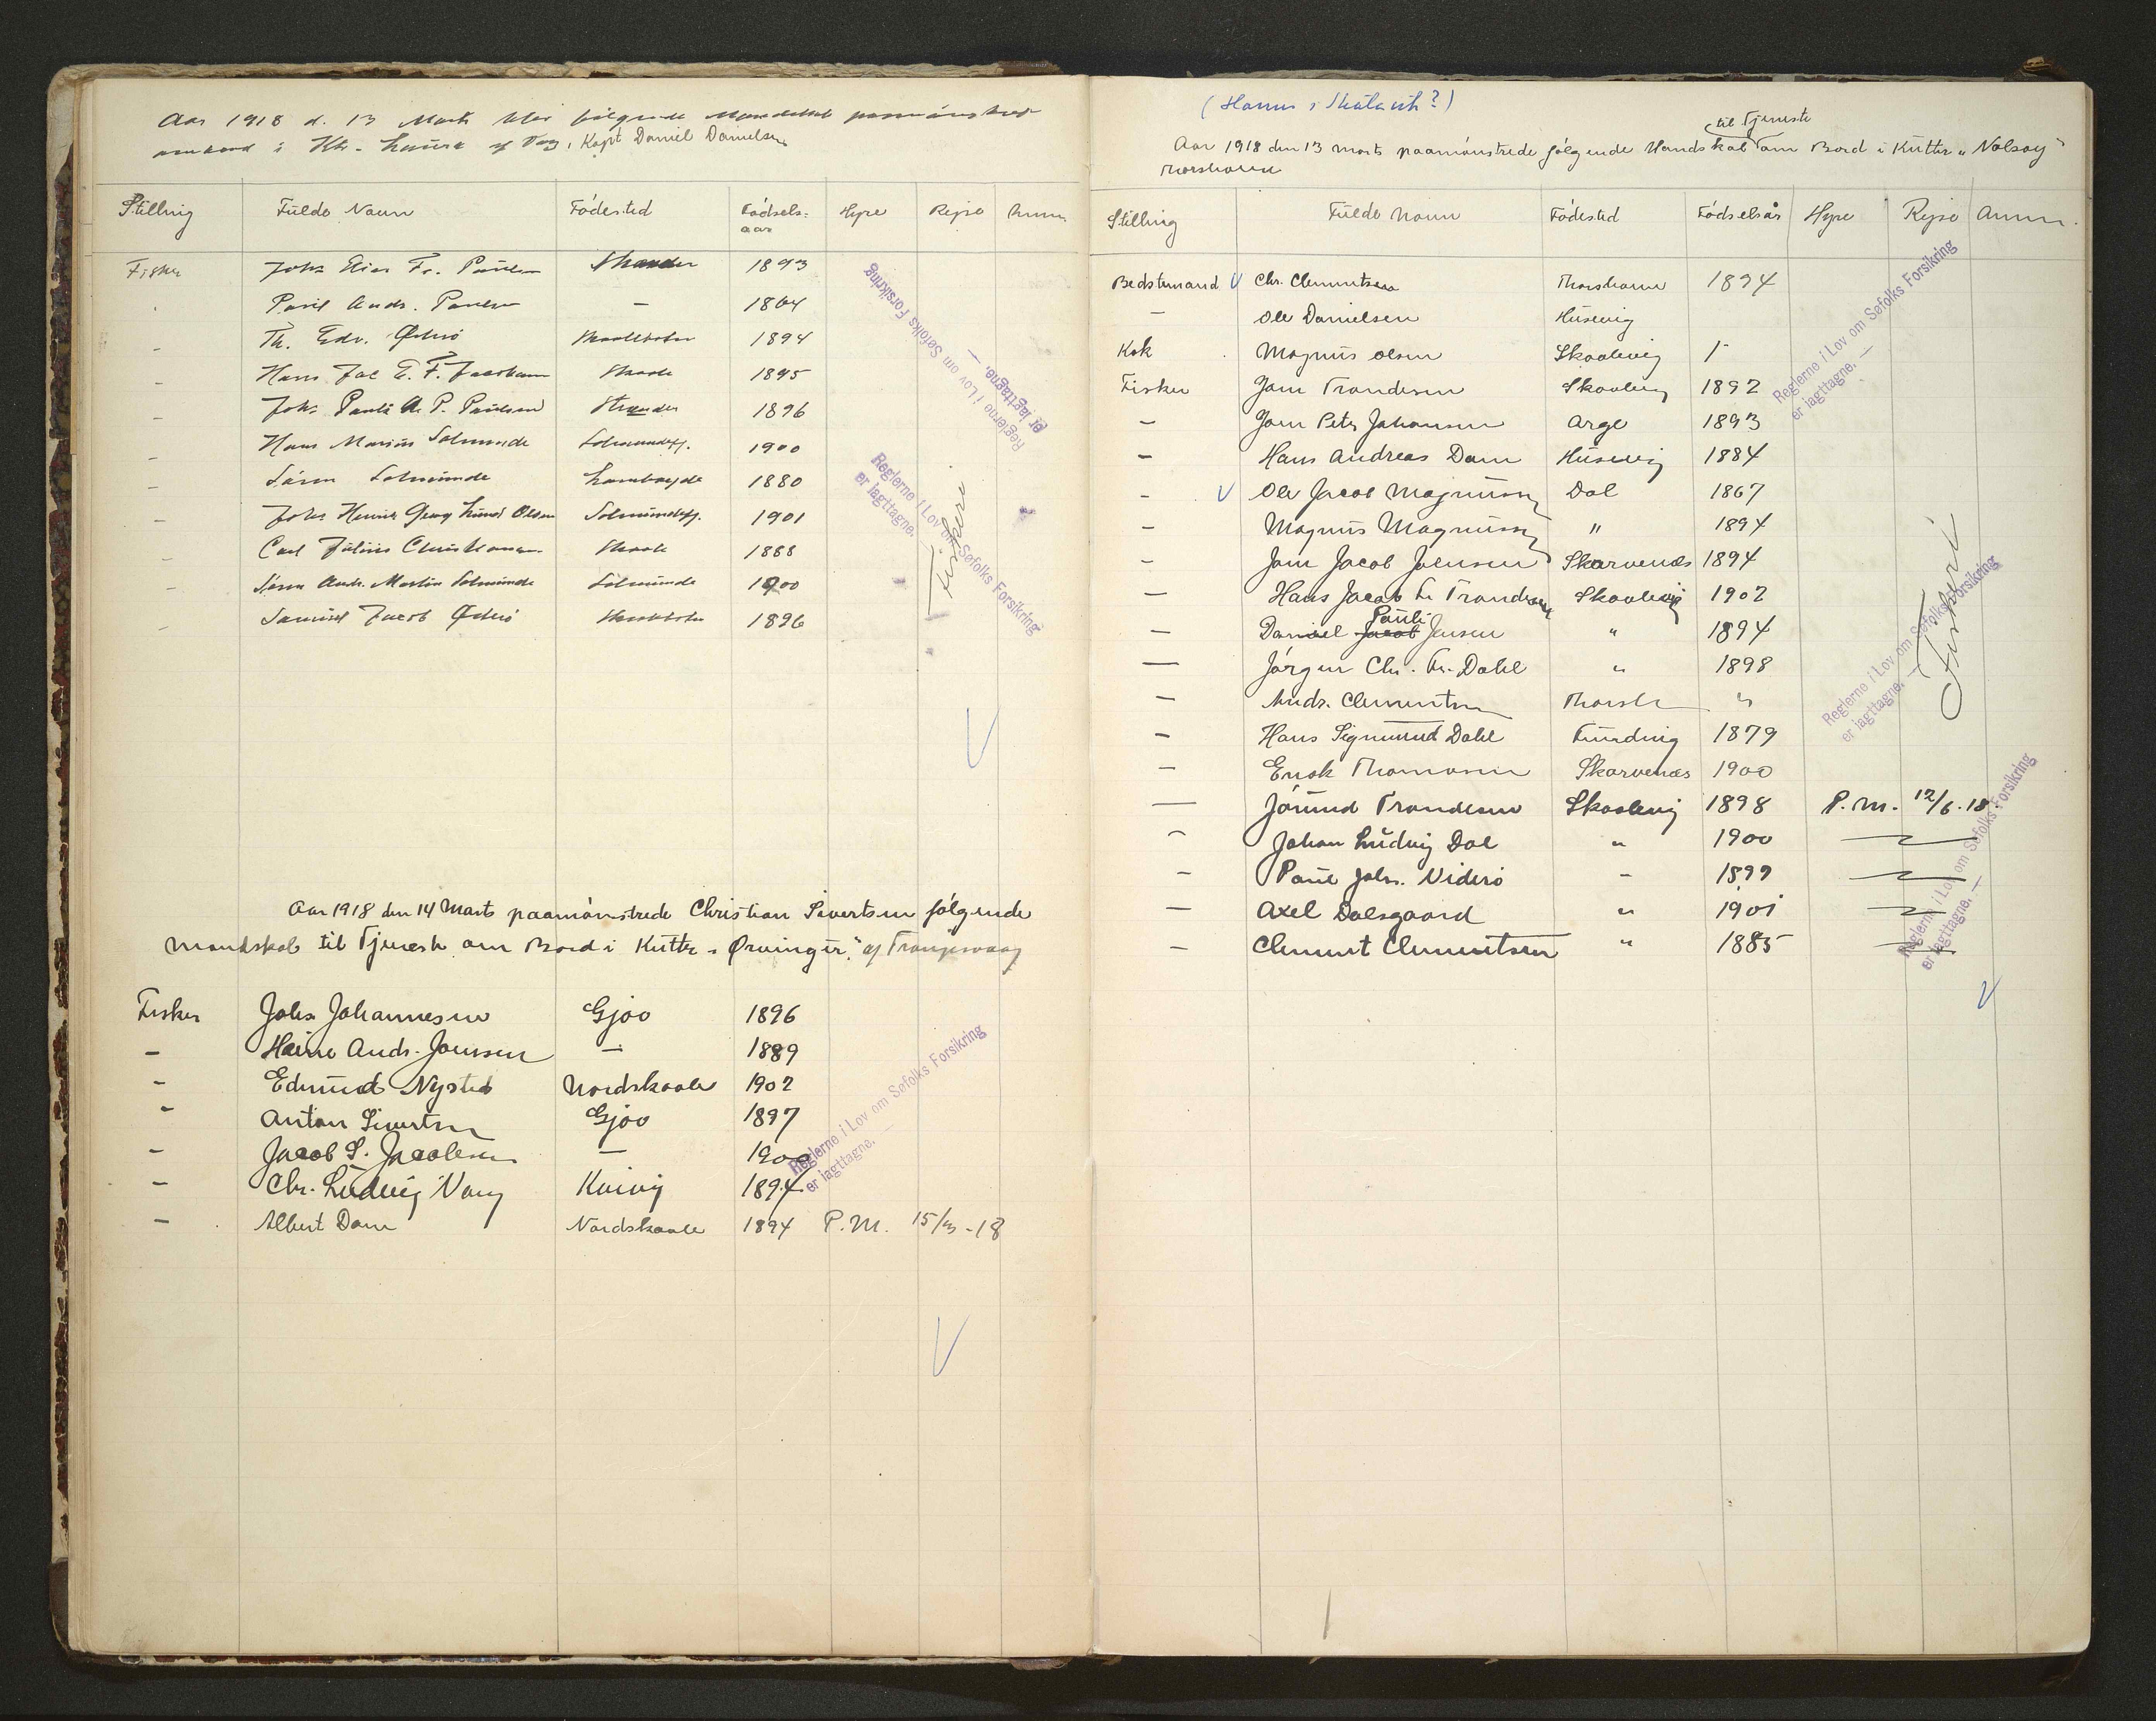 Aar 1918 d. 13 Marts blev følgende Mandskab paamønstret
ombord i Ktr. Laura af Vaag, Kapt Daniel Danielsen
Stilling Fulde Navn Fødested Fødsels-aar Hyre Rejse Anm
Fisker Johs Elias Fr. Poulsen 1893
Poul Andr. Poulsen — 1864
– Th. Edv. Østerø 1894
– Hans Jac E. F. Jacobsen 1895
– Johs Pauli A. P. Poulsen Strender 1896
– Hans Marius Solmunde Solmundefj. 1900
– Søren Solmunde Lambareide 1880
– Johs Henrik Georg Lund Olsen Solmundefj. 1901
– Carl Julius Christiansen Skaale 1888
– Søren Andr. Martin Solmunde Solmunde 1900
– Samuel Jacob Østerø 1896
Reglerne i Lov om Søfolks Forsikring
er iagttagne. —
Reglerne i Lov om Søfolks Forsikring
er iagttagne.
Fiskeri
Aar 1918 den 14 Marts paamønstrede Christian Sivertsen følgende
Mandskab til Tjeneste om Bord i Kutter „Ørvingur" af Trangisvaag
Fisker Johs Johannesen Gjoo 1896
– Heine Andr. Joensen — 1889
– Edmund Nysted Nordskaale 1902
– Anton Sivertsen Gjoo 1897
– Jacob S. Jacobsen — 1900
– Chr. Ludvig Vang Kvivig 1894
– Albert Dam Nordskaale 1894 P.M. 15/3-18
Reglerne i Lov om Søfolks Forsikring
er iagttagne. —
(Hanus í Skálavík?)
til Tjeneste
Aar 1918 den 13 Marts paamønstrede følgende Mandskab om Bord i Kutter „Nolsoy"
Thorshavn
Stilling Fulde Navn Fødested Fødselsår Hyre Rejse Anm.
Bedstemand Chr. Clementsen Thorshavn 1894
– Ole Danielsen Husevig
Kok Magnus Olsen Skaalevig 1
Fisker Joen Trondesen Skaalevig 1892
– Joen Peter Johansen Arge 1893
– Hans Andreas Dam Husevig 1884
– Ole Jacob Magnussen Dal 1867
– Magnus Magnussen " 1894
– Joen Jacob Joensen Skarvenæs 1894
– Hans Jacob Fr Trondesen Skaalevig 1902
– Daniel Jacob Pauli Jensen " 1894
– Jørgen Chr. Fr. Dahl " 1898
– Andr. Clementsen Thorsh "
– Hans Sigmund Dahl Funding 1879
– Enok Thomasen Skarvenæs 1900
– Jórund Trondesen Skaalevig 1898 P.M. 12/6.18.
– Johan Ludvig Dal " 1900
– Poul Johs. Viderø – 1899
– Axel Dalsgaard " 1901
– Clement Clementsen " 1885
Reglerne i Lov om Søfolks Forsikring
er iagttagne. —
Reglerne i Lov om Søfolks Forsikring
er iagttagne. —
Fiskeri
Reglerne i Lov om Søfolks Forsikring
er iagttagne. —